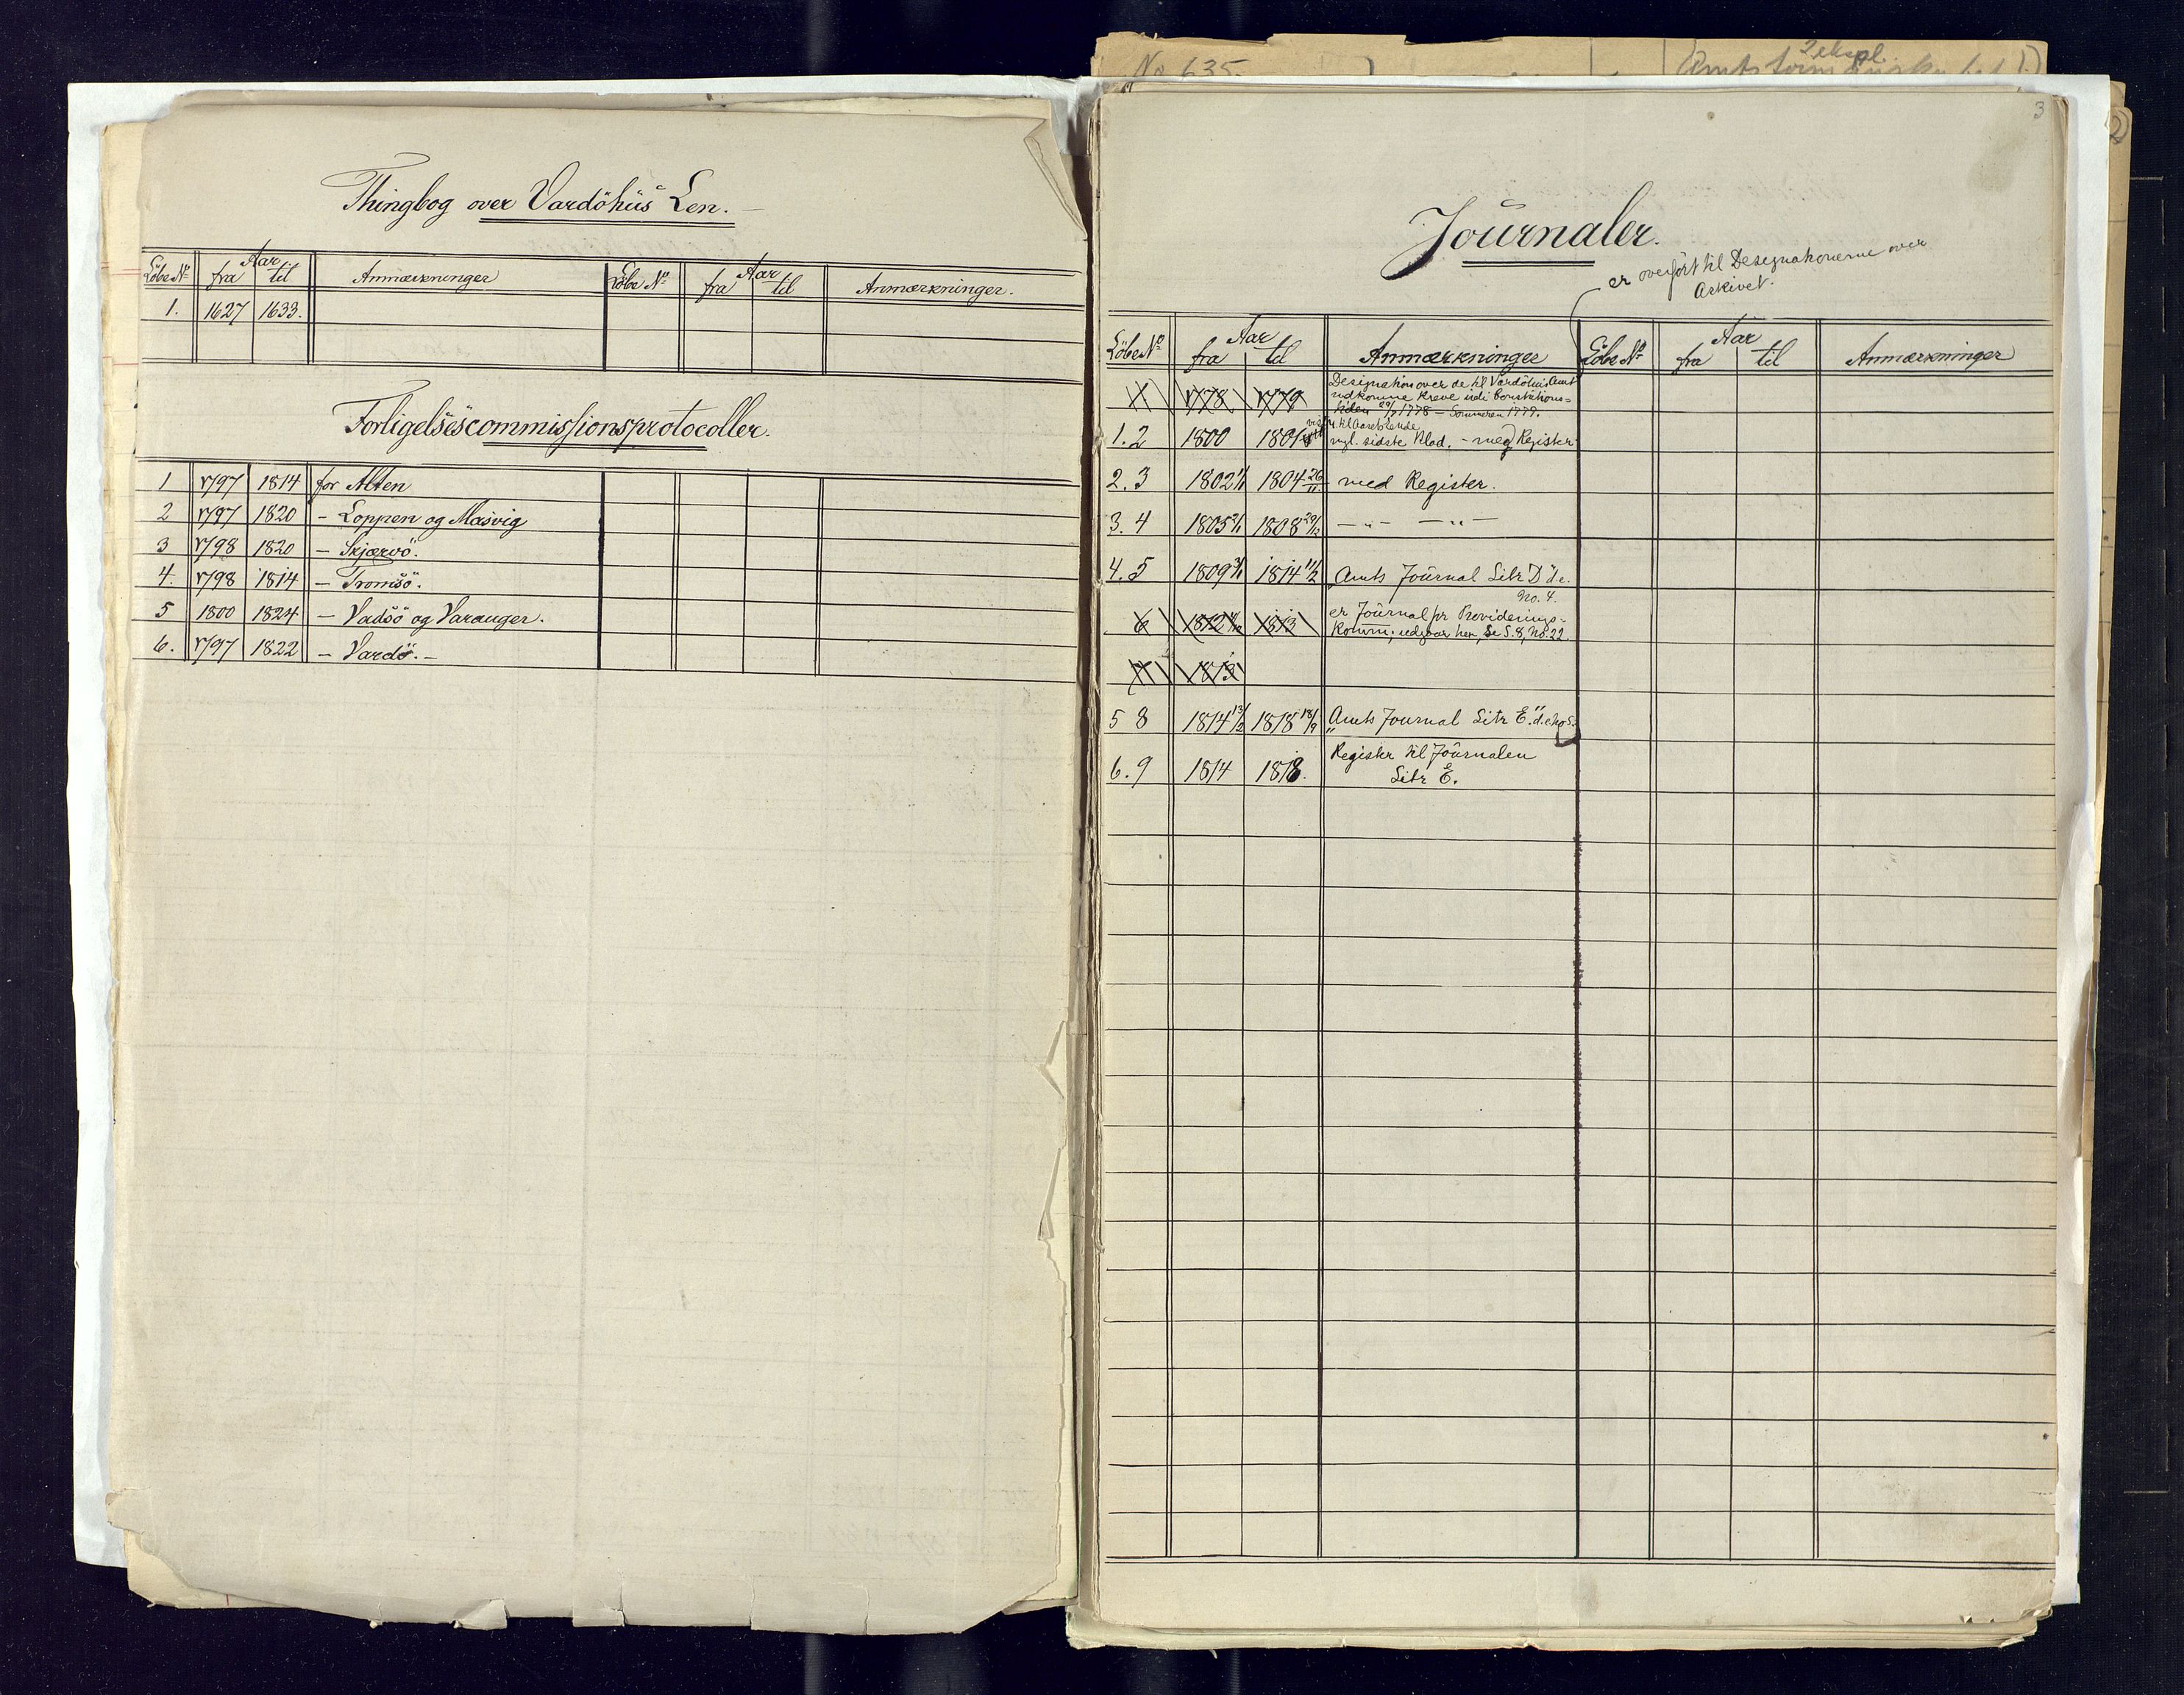 Thingbog over Vardöhüs Len. –
Löbe Nº Aar fra til Anmærkninger Löbe Nº Aar fra til Anmærkninger.
1. 1627 1633.
Forligelsescommissionsprotocoller.
1 1797 1814 for Alten
2 1797 1820 – Loppen og Masvig
3 1798 1820 – Skjærvö.
4. 1798 1814 – Tromsö.
5 1800 1824 – Vadsö og Varanger.
6. 1797 1822 – Vardö. –
No 635. 2 ekspl.
3
Journaler.
er overfört til Designationerne over
Arkivet.
Löbe Nº Aar fra til Anmærkninger Löbe Nº Aar fra til Anmærkninger
1 1778 1779 Designation over de til Vardöhus Amt
udkomne Breve
tiden 29/7 1778 – Sommeren 1779.
1.2 1800 1801 mgl. sidste Blad. – med Register
2.3 1802 1/1 1804 26/11 med Register.
3.4 1805 2/1 1808 29/12 – " – – " –
4.5 1809 3/1 1814 11/2 Amts Journal Litr D d.e.
No. 4.
6 1812 1813 er Journal for Providerings-
Komm; udgaar her, Se S. 8, No. 22.
7 1813
5 8 1814 13/2 1818 18/9 Amts Journal Litr E." d.e. No 5.
6.9 1814 1818. Register til Journalen
Litr E.